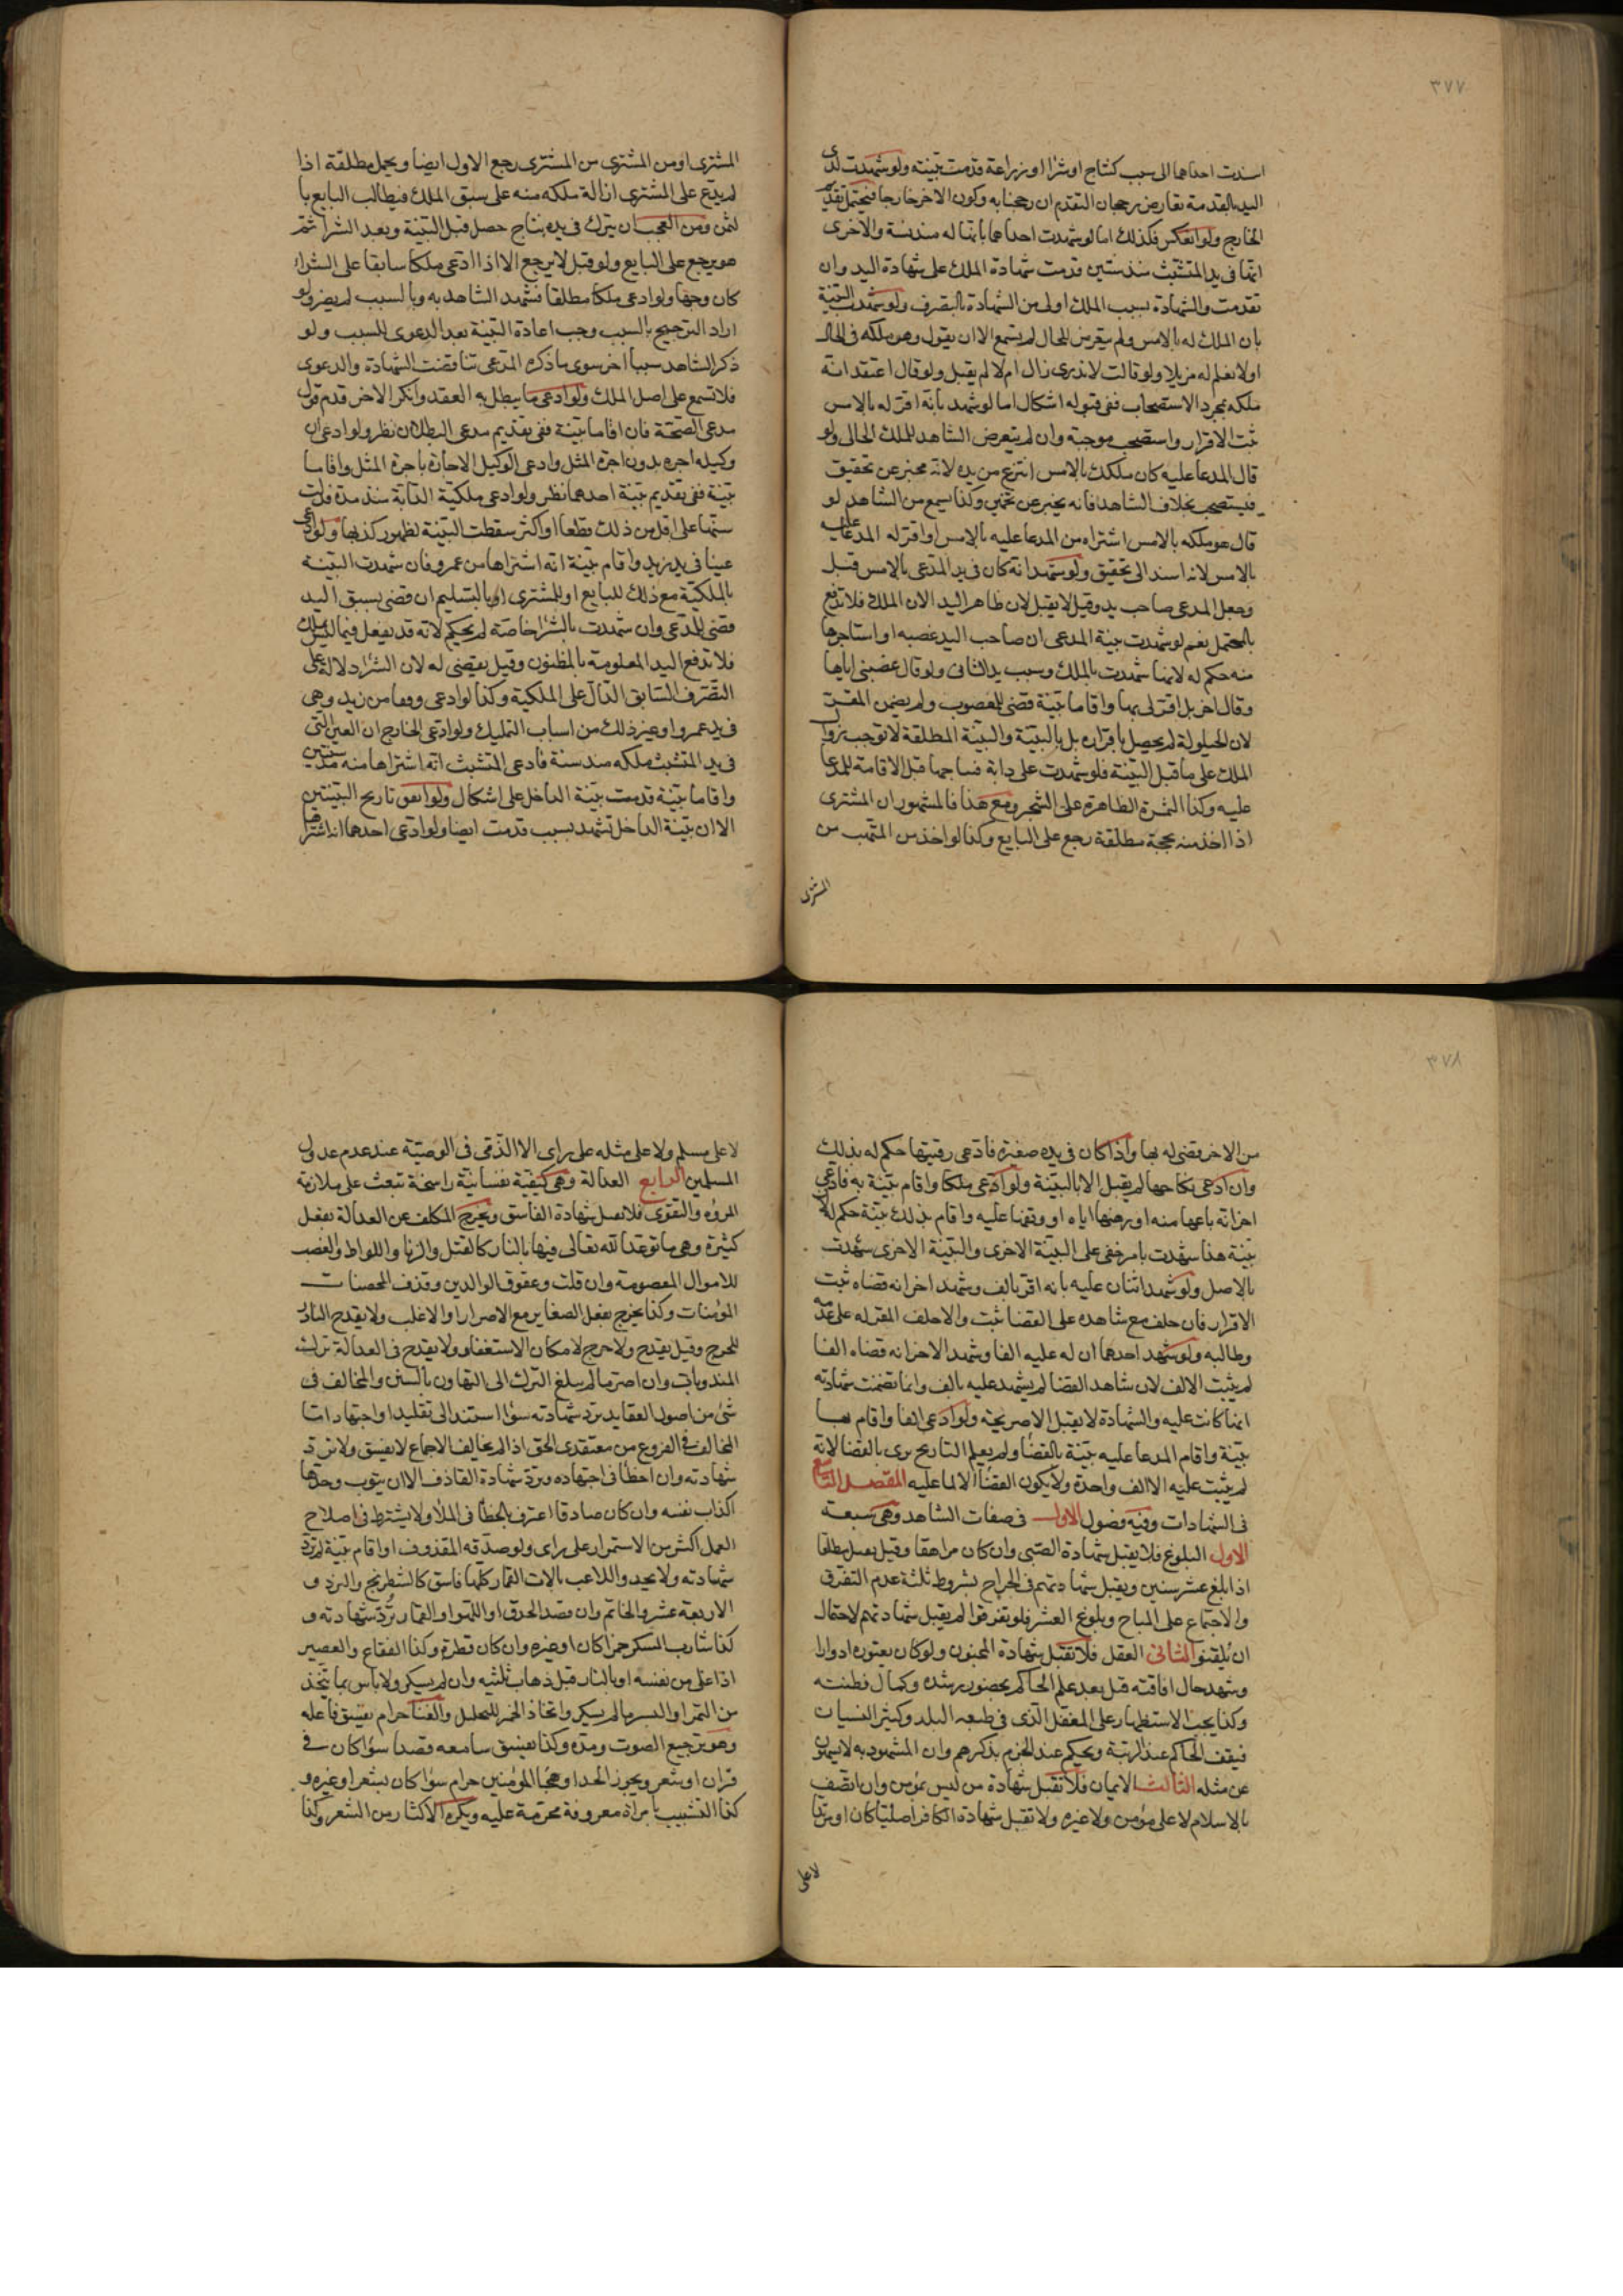 ٣٧٧
اسندت احداهما الى سبب كنتاج او شرا او زراعة قدمت بينته ولو شهدت لذى
اليد بالقدمة تعارض رجحان التقدم ان رجحنا به وكون الاخر خارجا فيحتمل تقديم
الخارج ولو انعكس فكذلك اما لو شهدت احداهما بانها له منذ سنة والاخرى
انها فى يد المتشبث منذ سنتين قدمت شهادة الملك على شهادة اليد وان
تقدمت والشهادة بسبب الملك اولى من الشهادة بالتصرف ولو شهدت البينة
بان الملك له بالامس ولم يتعرض للحال لم يسمع الا ان يقول وهو ملكه فى الحال
اولا نعلم له مزيلا ولو قالت لا ندرى زال ام لا لم يقبل ولو قال اعتقد انه
ملكه بمجرد الاستصحاب ففى قبوله اشكال اما لو شهد بانه اقر له بالامس
ثبت الاقرار واستصحب موجبه وان لم يتعرض الشاهد للملك الحالى ولو
قال المدعا عليه كان ملكك بالامس انتزع من يده لانه مخبر عن تحقيق
فيستصحب بخلاف الشاهد فانه يخبر عن تخمين وكذا يسمع من الشاهد لو
قال هو ملكه بالامس اشتراه من المدعا عليه بالامس او اقر له المدعا عليه
بالامس لانه اسند الى تحقيق ولو شهد انه كان فى يد المدعى بالامس قبل
وجعل المدعى صاحب يد وقيل لا يقبل لان ظاهر اليد الان الملك فلا تدفع
بالمحتمل نعم لو شهدت بينة المدعى ان صاحب اليد غصبه او استاجرها
منه حكم له لانها شهدت بالملك وسبب يد الثانى ولو قال غصبنى اياها
وقال اخر بل اقر لى بها واقاما بينة قضى للمغصوب ولم يضمن المقر
لان الحيلولة لم يحصل باقراره بل بالبينة والبينة المطلقة لا توجب زوال
الملك على ما قبل البينة فلو شهدت على دابة فنتاجها قبل الاقامة للمدعا
عليه وكذا الثمرة الظاهرة على الشجر ومع هذا فالمشهور ان المشترى
اذا اخذ منه بحجة مطلقة رجع على البايع وكذا لو اخذ من المتهب من
المشترى
المشترى او من المشترى من المشترى رجع الاول ايضا ويحمل مطلقة اذا
لم يدع على المشترى ازالة ملكه منه على سبق الملك فيطالب البايع با
لثمن ومن العجب ان يترك فى يده نتاج حصل قبل البينة وبعد الشرا ثم
هو يرجع على البايع ولو قيل لا يرجع الا اذا ادعى ملكا سابقا على الشراء
كان وجها ولو ادعى ملكا مطلقا فشهد الشاهد به وبالسبب لم يضر ولو
اراد الترجيح بالسبب وجب اعادة البينة بعد الدعوى للسبب ولو
ذكر الشاهد سببا اخر سوى ما ذكره المدعى تناقضت الشهادة والدعوى
فلا تسمع على اصل الملك ولو ادعى ما يبطل به العقد وانكر الاخر قدم قول
مدعى الصحة فان اقاما بينة ففى تقديم مدعى البطلان نظر ولو ادعى ان
وكيله اجره بدون اجرة المثل وادعى الوكيل الاجارة باجرة المثل واقاما
بينة ففى تقديم بينة احدهما نظر ولو ادعى ملكية الدابة منذ مدة فدلت
سنها على اقل من ذلك قطعا او اكثر سقطت البينة لظهور كذبها ولو ادعى
عينا فى يد زيد واقام بينة انه اشتراها من عمرو فان شهدت البينة
بالملكية مع ذلك للبايع او للمشترى او بالتسليم ان قضى بسبق اليد
قضى للمدعى وان شهدت بالشرا خاصة لم يحكم لانه قد يفعل فيما ليس بملك
فلا تدفع اليد المعلومة بالمظنون وقيل يقضى له لان الشراء دلالة على
التصرف السابق الدال على الملكية وكذا لو ادعى وقفا من زيد وهى
فى يد عمرو او غير ذلك من اسباب التمليك ولو ادعى الخارج ان العين التى
فى يد المتشبث ملكه منذ سنة فادعى المتشبث انه اشتراها منه منذ سنتين
واقاما بينة قدمت بينة الداخل على اشكال ولو اتفق تاريخ البينتين
الا ان بينة الداخل تشهد بسبب قدمت ايضا ولو ادعى احدهما انه اشتراها
٣٧٨
من الاخر قضى له بها واذا كان فى يده صغيرة فادعى رقيتها حكم له بذلك
وان ادعى نكاحها لم يقبل الا بالبينة ولو ادعى ملكا واقام بينة به فادعى
اخر انه باعها منه او رهنها اياه او وقفها عليه واقام بذلك بينة حكم له لان
بينة هذا شهدت بامر خفى على البينة الاخرى والبينة الاخرى شهدت
بالاصل ولو شهد اثنان عليه بانه اقر بالف وشهد اخر انه قضاه ثبت
الاقرار فان حلف مع شاهده على القضا ثبت والا حلف المقر له على عدمه
وطالبه ولو شهد احدهما ان له عليه الفا وشهد الاخر انه قضاه الفا
لم يثبت الالف لان شاهد القضا لم يشهد عليه بالف وانما تضمنت شهادته
انها كانت عليه والشهادة لا يقبل الا صريحة ولو ادعى الفا واقام بها
بينة واقام المدعا عليه بينة بالقضا ولم يعلم التاريخ برى بالقضا لانه
لم يثبت عليه الا الف واحدة ولا يكون القضا الا لما عليه المقصد التاسع
فى الشهادات وفيه فصول الاول فى صفات الشاهد وهى سبعة
الاول البلوغ فلا يقبل شهادة الصبى وان كان مراهقا وقيل يقبل مطلقا
اذا بلغ عشر سنين ويقبل شهادتهم فى الجراح بشروط ثلثة عدم التفرق
والاجتماع على المباح وبلوغ العشر فلو تفرقوا لم يقبل شهادتهم لاحتمال
ان يلقنوا الثانى العقل فلا تقبل شهادة المجنون ولو كان يعتوره ادوارا
وشهد حال افاقته قبل بعد علم الحاكم بحضور رشده وكمال فطنته
وكذا يجب الاستظهار على المغفل الذى فى طبعه البله وكثير النسيان
فيقف الحاكم عند الريبة ويحكم عند الجزم بذكرهم وان المشهود به لا يسهون
عن مثله الثالث الايمان فلا تقبل شهادة من ليس بمؤمن وان اتصف
بالاسلام لا على مؤمن ولا غيره ولا تقبل شهادة الكافر اصليا كان او مرتدا
لا على
لا على مسلم ولا على مثله على راى الا الذمى فى الوصية عند عدم عدول
المسلمين الرابع العدالة وهى كيفية نفسانية راسخة تبعث على ملازمة
المروه والتقوى فلا تقبل شهادة الفاسق ويخرج المكلف عن العدالة بفعل
كبيرة وهى ما توعد الله تعالى فيها بالنار كالقتل والزنا واللواط والغصب
للاموال المعصومة وان قلت وعقوق الوالدين وقذف المحصنات
المؤمنات وكذا يخرج بفعل الصغاير مع الاصرار او الاغلب ولا يقدح النادر
للحرج وقيل يقدح ولا حرج لامكان الاستغفار ولا يقدح فى العدالة ترك
المندوبات وان اصر ما لم يبلغ الترك الى التهاون بالسنن والمخالف فى
شئ من اصول العقايد ترد شهادته سؤا استند الى تقليد او اجتهاد اما
المخالف فى الفروع من معتقدى الحق اذا لم يخالف الاجماع لا يفسق ولا ترد
شهادته وان اخطأ فى اجتهاده وترد شهادة القاذف الا ان يتوب وحدها
اكذاب نفسه وان كان صادقا اعترف بالخطأ فى الملأ ولا يشترط فى اصلاح
العمل اكثر من الاستمرار على راى ولو صدقه المقذوف او اقام بينة لم ترد
شهادته ولا يحد واللاعب بالات القمار كلها فاسق كالشطرنج والنرد و
الاربعة عشر والخاتم وان قصد الحذق او اللهو او القمار ترد شهادته و
كذا شارب المسكر خمرا كان او غيره وان كان قطرة وكذا الفقاع والعصير
اذا غلى من نفسه او بالنار قبل ذهاب ثلثيه وان لم يسكر ولا باس بما يتخذ
من التمر او البسر ما لم يسكر واتخاذ الخمر للتخليل والغنا حرام يفسق فاعله
وهو ترجيع الصوت ومده وكذا يفسق سامعه قصدا سؤا كان فى
قران او شعر ويجوز الحدا وهجا المؤمنين حرام سؤا كان بشعر او غيره و
كذا التشبيب بامراة معروفة محرمة عليه ويكره الاكثار من الشعر وكذا